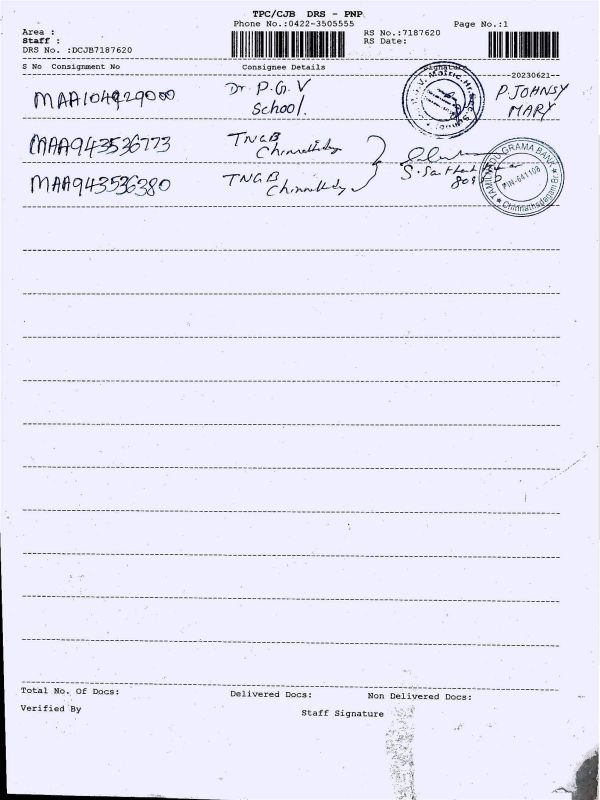 TPC/CJB DRS - PNP
Phone No.:0422-3505555
Page No.:1
Area :
Staff :
DRS No. :DCJB7187620
RS No.:7187620
RS Date:
S No Consignment No
Consignee Details
Signature
--20230621--
MAA104929000
Dr. P.G.V
School.
P. JOHNSY
MARY
MAA943536773
TNGB
MAA943536380
TNGB
TAMIL NADU GRAMA BANK
PIN-641108
Chinnathadagam Br.
Total No. Of Docs:
Delivered Docs:
Non Delivered Docs:
Verified By
Staff Signature